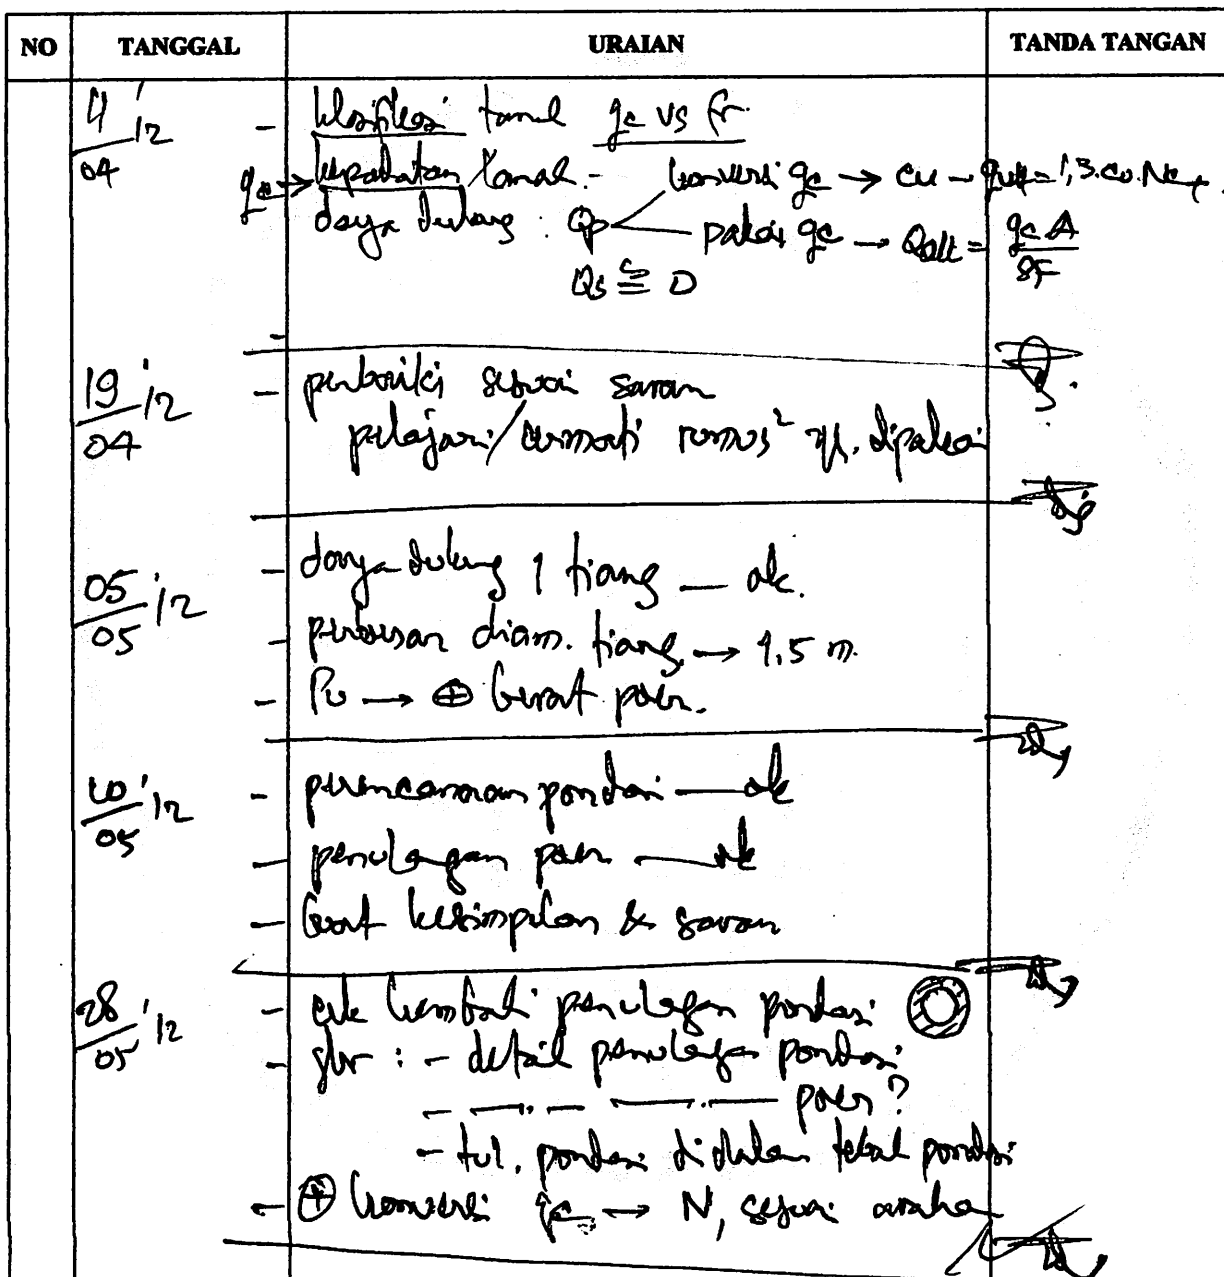 NO TANGGAL URAIAN TANDA TANGAN
4/04 '12 - klasifikasi tanah qc vs fr.
qc → kepadatan tanah. - konversi qc → cu - qult = 1,3.cu.Nc
daya dukung : Qp pakai qc → Qall = qc A / SF
Qs ≅ 0
19/04 '12 - perbaiki sesuai saran
pelajari/cermati rumus² yg. dipakai
05/05 '12 - daya dukung 1 tiang — ok.
- perbesar diam. tiang → 1,5 m.
- Pu → ⊕ berat poer.
10/05 '12 - perencanaan pondasi — ok
- penulangan poer — ok
- buat kesimpulan & saran
28/05 '12 - cek kembali penulangan pondasi
- gbr : - detail penulangan pondasi
- —〃— —〃— poer?
- tul. pondasi didalam tebal pondasi
- ⊕ konversi qc → N, sesuai arahan